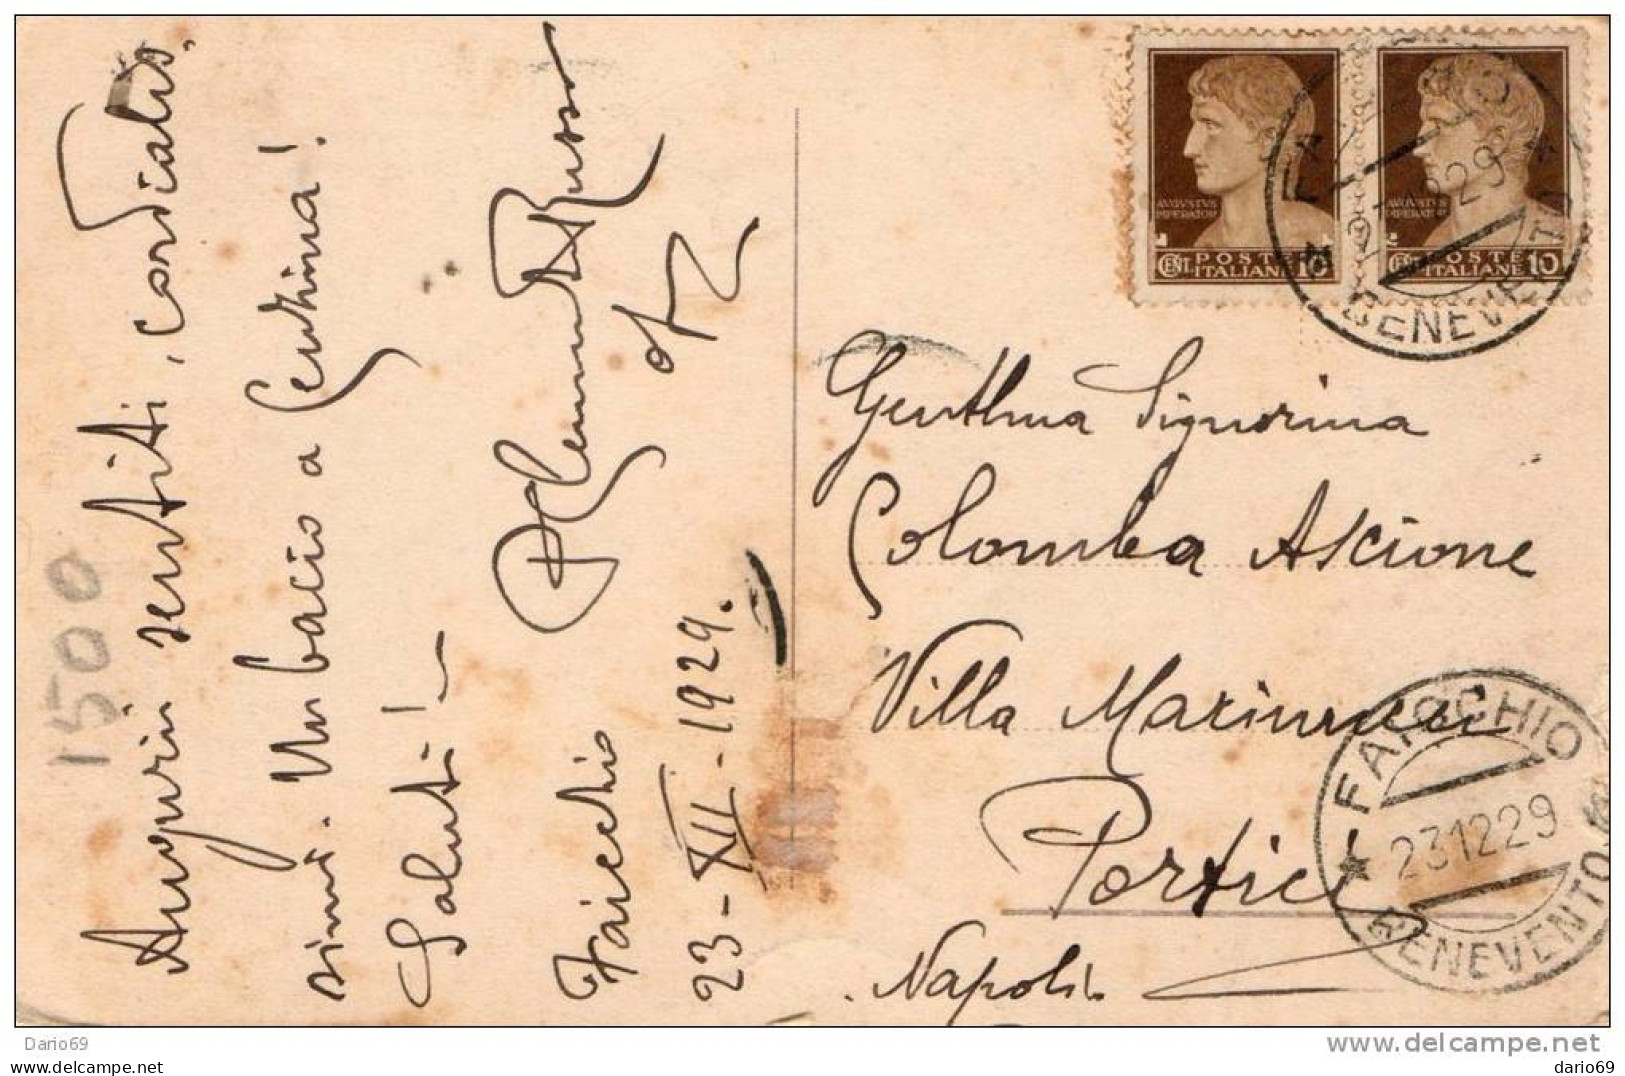 Auguri sentiti, cordialis
simi. Un bacio a
Saluti!
Russo
Faicchio
23-XII-1929.
1500
AVGVSTVS
IMPERATOR
CENT. POSTE
ITALIANE 10
AVGVSTVS
IMPERATOR
CENT. POSTE
ITALIANE 10
BENEVENTO
Gentilma Signorina
Colomba Ascione
Villa Marinucci
Portici
Napoli.
FAICCHIO
231229
BENEVENTO
Dario69
www.delcampe.net
dario69